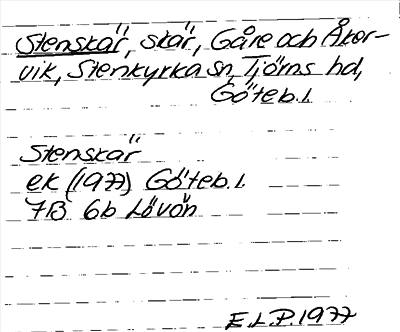 Stenskär, skär, Gåre och Åker-
vik, Stenkyrka sn, Tjörns hd,
Göteb. l.
Stenskär
ek (1977) Göteb. l.
7B 6b Lövön
E.L.P. 1977